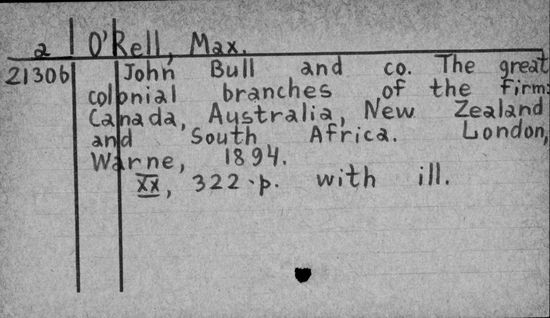 a O'Rell, Max.
21306 John Bull and co. The great
colonial branches of the firm:
Canada, Australia, New Zealand
and South Africa. London,
Warne, 1894.
XX, 322 p. with ill.